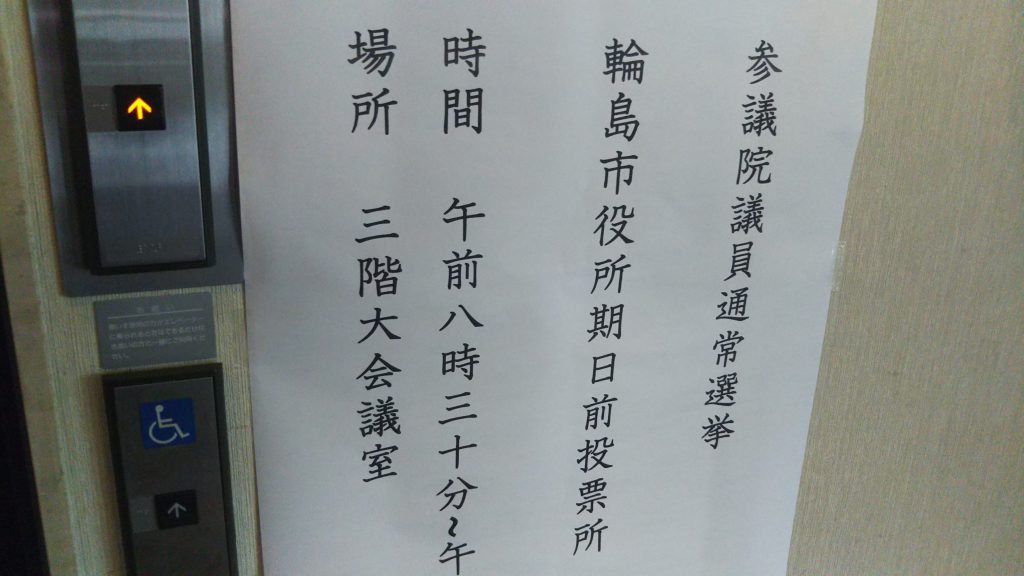 参議院議員通常選挙
輪島市役所期日前投票所
時間 午前八時三十分~午
場所 三階大会議室